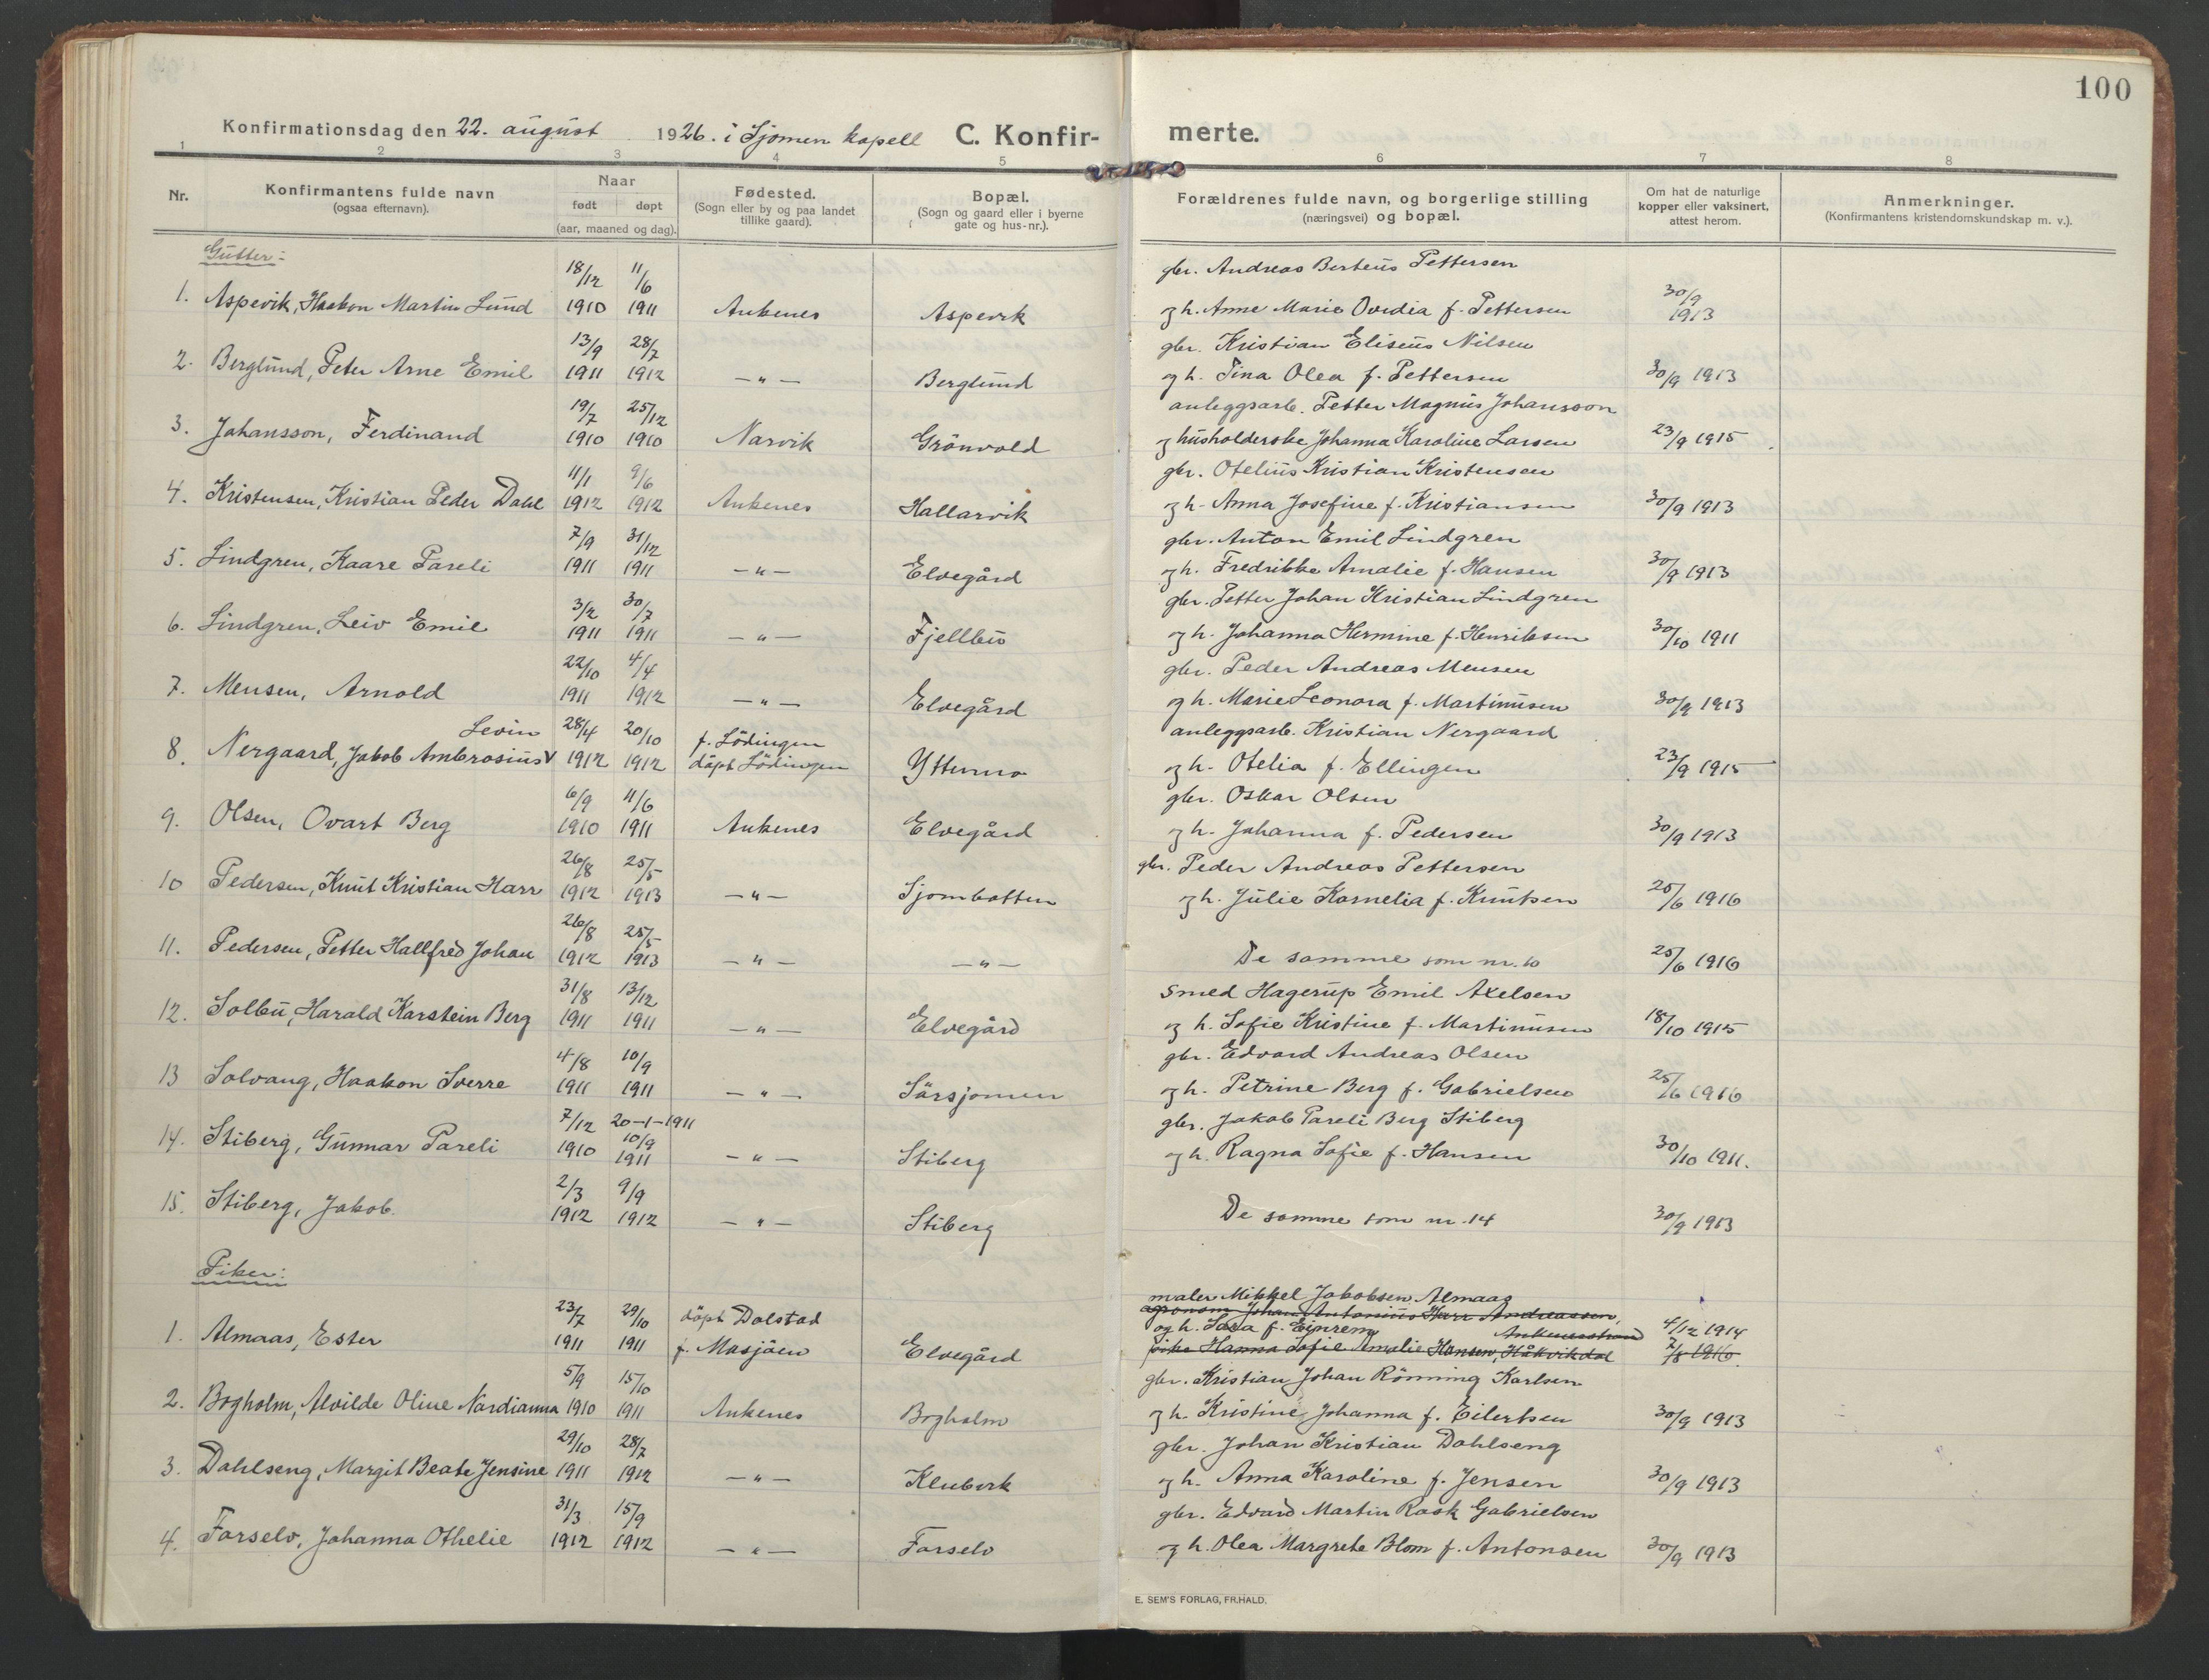 100
Konfirmationsdag den 22. august 1926. i Sjomen kapell C. Konfir-
merte.
1 2 3 4 5 6 7 8
Nr.
Konfirmantens fulde navn
(ogsaa efternavn).
Naar
født døpt
(aar, maaned og dag).
Fødested.
(Sogn eller by og paa landet
tillike gaard).
Bopæl.
(Sogn og gaard eller i byerne
gate og hus-nr.).
Forældrenes fulde navn, og borgerlige stilling
(næringsvei) og bopæl.
Om hat de naturlige
kopper eller vaksinert,
attest herom.
Anmerkninger.
(Konfirmantens kristendomskundskap m. v.).
Gutter:
18/12 11/6 gbr. Andreas Berteüs Pettersen
1. Aspevik, Haakon Martin Lund 1910 1911 Ankenes Aspevik og h. Anne Marie Ovidia f. Pettersen 30/9 1913
13/9 28/7 gbr. Kristian Eliseüs Nilsen
2. Berglund, Peter Arne Emil 1911 1912 -"- Berglund og h. Tina Olea f. Pettersen 30/9 1913
19/7 25/12 anleggsarb. Petter Magnus Johansson
3. Johansson, Ferdinand 1910 1910 Narvik Grönvold og husholderske Johanna Karoline Larsen 23/9 1915
11/1 9/6 gbr. Oteliüs Kristian Kristensen
4. Kristensen, Kristian Peder Dahl 1912 1912 Ankenes Hallarvik og h. Anna Josefine f. Kristiansen 30/9 1913
7/9 31/12 gbr. Anton Emil Lindgren
5. Lindgren, Kaare Pareli 1911 1911 -"- Elvegård og h. Fredrikke Amalie f. Hansen 30/9 1913
3/2 30/7 gbr. Petter Johan Kristian Lindgren
6. Lindgren, Leiv Emil 1911 1911 -"- Fjellbu og h. Johanna Hermine f. Henriksen 30/10 1911
22/10 4/4 gbr. Peder Andreas Mensen
7. Mensen, Arnold 1911 1912 -"- Elvegård og h. Marie Leonora f. Martinüsen 30/9 1913
Levin 28/4 20/10 f. Lödingen anleggsarb. Kristian Nergaard
8. Nergaard, Jakob Ambrosiüs V 1912 1912 döpt Lödingen Yttermo og h. Otelia f. Ellingen 23/9 1915
6/9 11/6 gbr. Oskar Olsen
9. Olsen, Ovart Berg 1910 1911 Ankenes Elvegård og h. Johanna f. Pedersen 30/9 1913
26/8 25/5 gbr. Peder Andreas Pettersen
10 Pedersen, Knut Kristian Harr 1912 1913 -"- Sjombotten og h. Julie Kornelia f. Knutsen 25/6 1916
26/8 25/5
11. Pedersen, Petter Hallfred Johan 1912 1913 -"- -"- De samme som nr. 10 25/6 1916
31/8 13/12 smed Hagerup Emil Axelsen
12. Solbu, Harald Karstein Berg 1911 1911 -"- Elvegård og h. Sofie Kristine f. Martinüsen 18/10 1915
4/8 10/9 gbr. Edvard Andreas Olsen
13 Solvang, Haakon Sverre 1911 1911 -"- Sörsjomen og h. Petrine Berg f. Gabrielsen 25/6 1916
7/12 20-1-1911 gbr. Jakob Pareli Berg Stiberg
14. Stiberg, Gunnar Pareli 1910 10/9 1911 -"- Stiberg og h. Ragna Sofie f. Hansen 30/10 1911.
2/3 9/9
15. Stiberg, Jakob. 1912 1912 -"- Stiberg De samme som nr. 14 30/9 1913
Piker:
maler Mikkel Jakobsen Almaas
23/7 29/10 döpt Dolstad agronom Johan Antonius Harr Andreassen, Ankenesstrand
1. Almaas, Ester 1911 1911 f. Mosjöen Elvegård og h. Sara f. Einrem 4/12 1914
pike Hanna Sofie Amalie Hansen, Håkvikdal 7/8 1916.
5/9 15/10 gbr. Kristian Johan Rönning Karlsen
2. Bogholm, Alvilde Oline Nordianna 1910 1911 Ankenes Bogholm og h. Kristine Johanna f. Eilertsen 30/9 1913
29/10 28/7 gbr. Johan Kristian Dahlseng
3. Dahlseng, Margit Beate Jensine 1911 1912 -"- Klubvik og h. Anna Karoline f. Jensen 30/9 1913
31/3 15/9 gbr. Edvard Martin Rask Gabrielsen
4. Forselv, Johanna Othelie 1912 1912 -"- Forselv og h. Olea Margrete Blom f. Antonsen 30/9 1913
E. SEM'S FORLAG, FR.HALD.